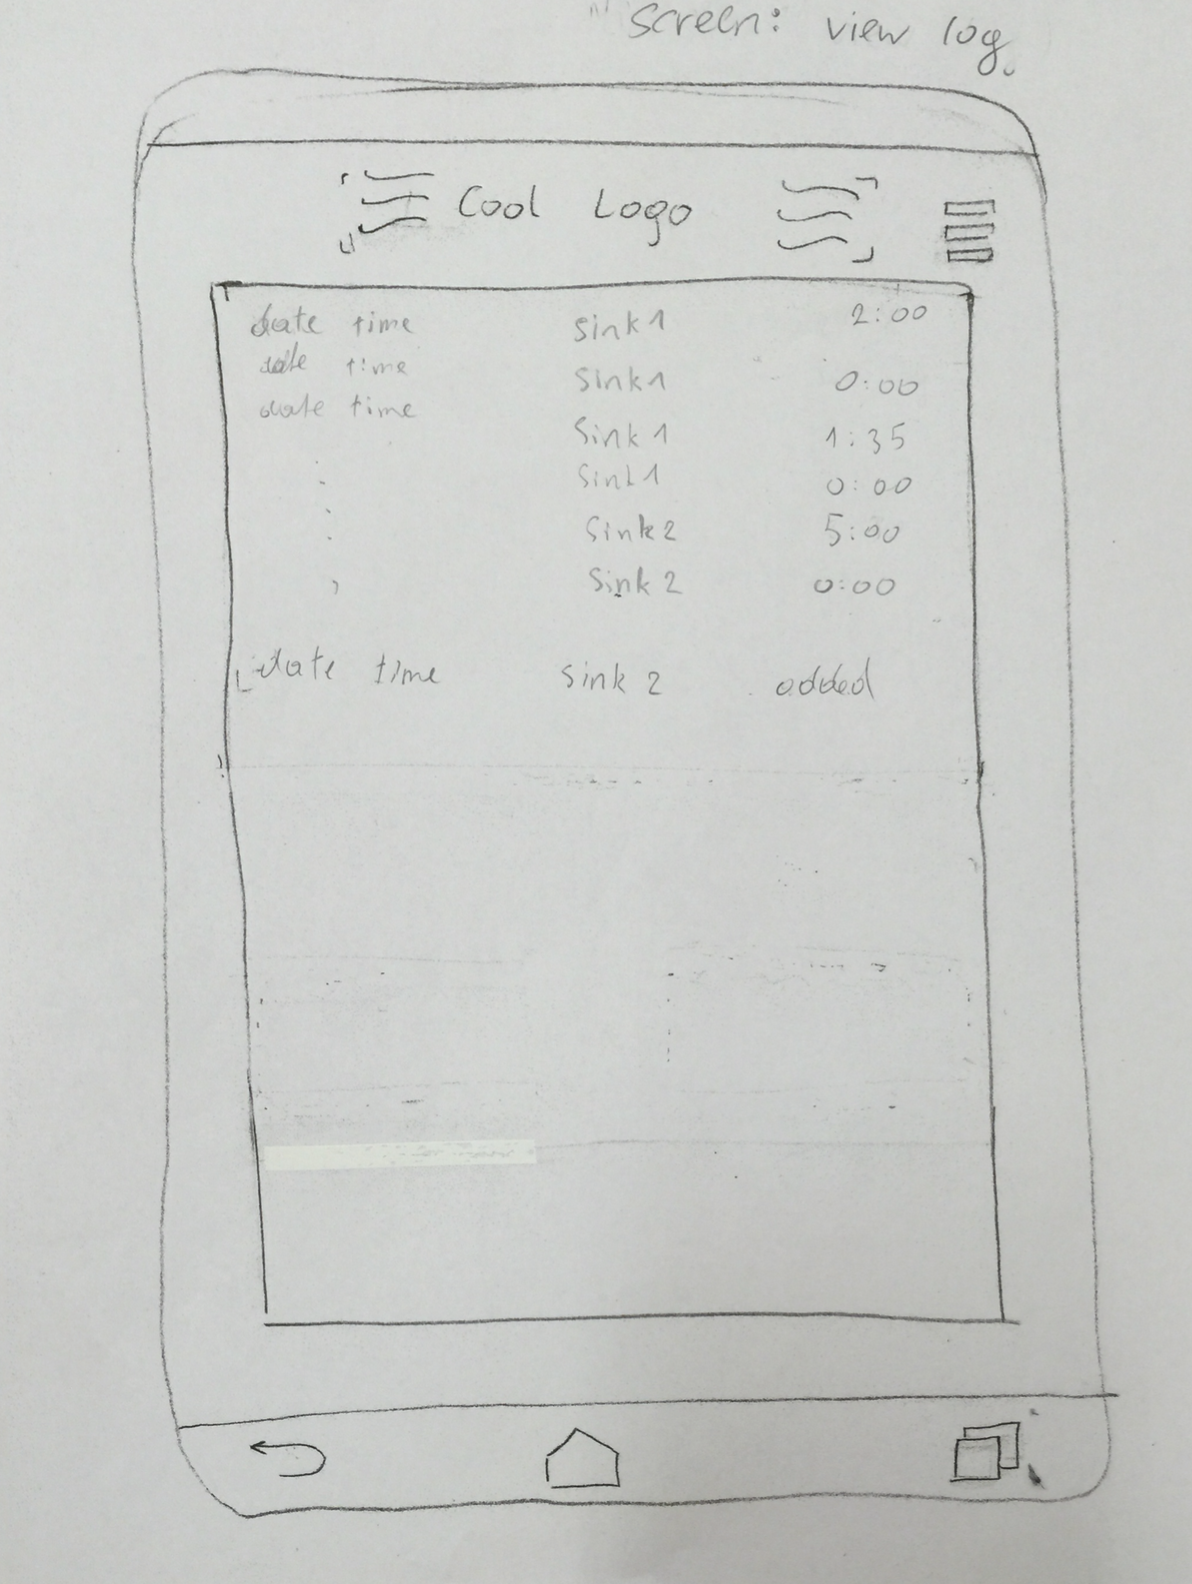 screen: view log
Cool Logo
date time sink 1 2:00
date time sink 1 0:00
date time sink 1 1:35
sink 1 0:00
sink 2 5:00
sink 2 0:00
date time sink 2 added